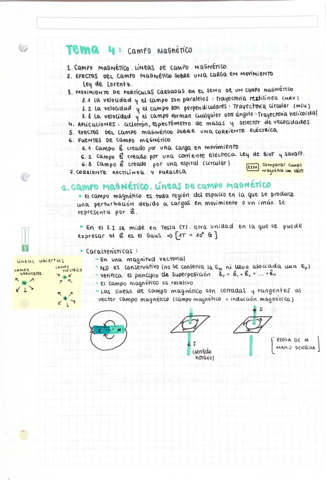 Tema 4: CAMPO MAGNÉTICO
1. CAMPO MAGNÉTICO. LÍNEAS DE CAMPO MAGNÉTICO
2. EFECTOS DEL CAMPO MAGNÉTICO SOBRE UNA CARGA EN MOVIMIENTO
Ley de Lorentz.
3. MOVIMIENTO DE PARTÍCULAS CARGADAS EN EL SENO DE UN CAMPO MAGNÉTICO
3.1 La velocidad y el campo son paralelos: Trayectoria rectilínea (MRU)
3.2 La velocidad y el campo son perpendiculares: Trayectoria circular (MCU)
3.3 La velocidad y el campo forman cualquier otro ángulo: Trayectoria helicoidal
4. APLICACIONES: ciclotrón, espectrómetro de masas y selector de velocidades
5. EFECTOS DEL CAMPO MAGNÉTICO SOBRE UNA CORRIENTE ELÉCTRICA
6. FUENTES DE CAMPO MAGNÉTICO
6.1 Campo B⃗ creado por una carga en movimiento
6.2 Campo B⃗ creado por una corriente eléctrica. Ley de Biot y Savart.
6.3 Campo B⃗ creado por una espira (circular)
7. CORRIENTE RECTILÍNEA Y PARALELA
1. CAMPO MAGNÉTICO. LÍNEAS DE CAMPO MAGNÉTICO
• El campo magnético es toda región del espacio en la que se produce
una perturbación debido a cargas en movimiento o un imán. Se
representa por B⃗.
• En el S.I se mide en Tesla (T). Otra unidad en la que se puede
expresar el B⃗ es el Gaus ⇒ [1T = 10⁴ G]
• Características:
- Es una magnitud vectorial
- NO es conservativo (no se conserva la Em ni lleva asociada una Ep)
- Verifica el principio de superposición B⃗T = B⃗1 + B⃗2 + ... + B⃗n
- El campo magnético es relativo
- Las líneas de campo magnético son cerradas y tangentes al
vector campo magnético (campo magnético = inducción magnética)
líneas abiertas
I
(sentido
horario)
I
[REGLA DE LA
MANO DERECHA]